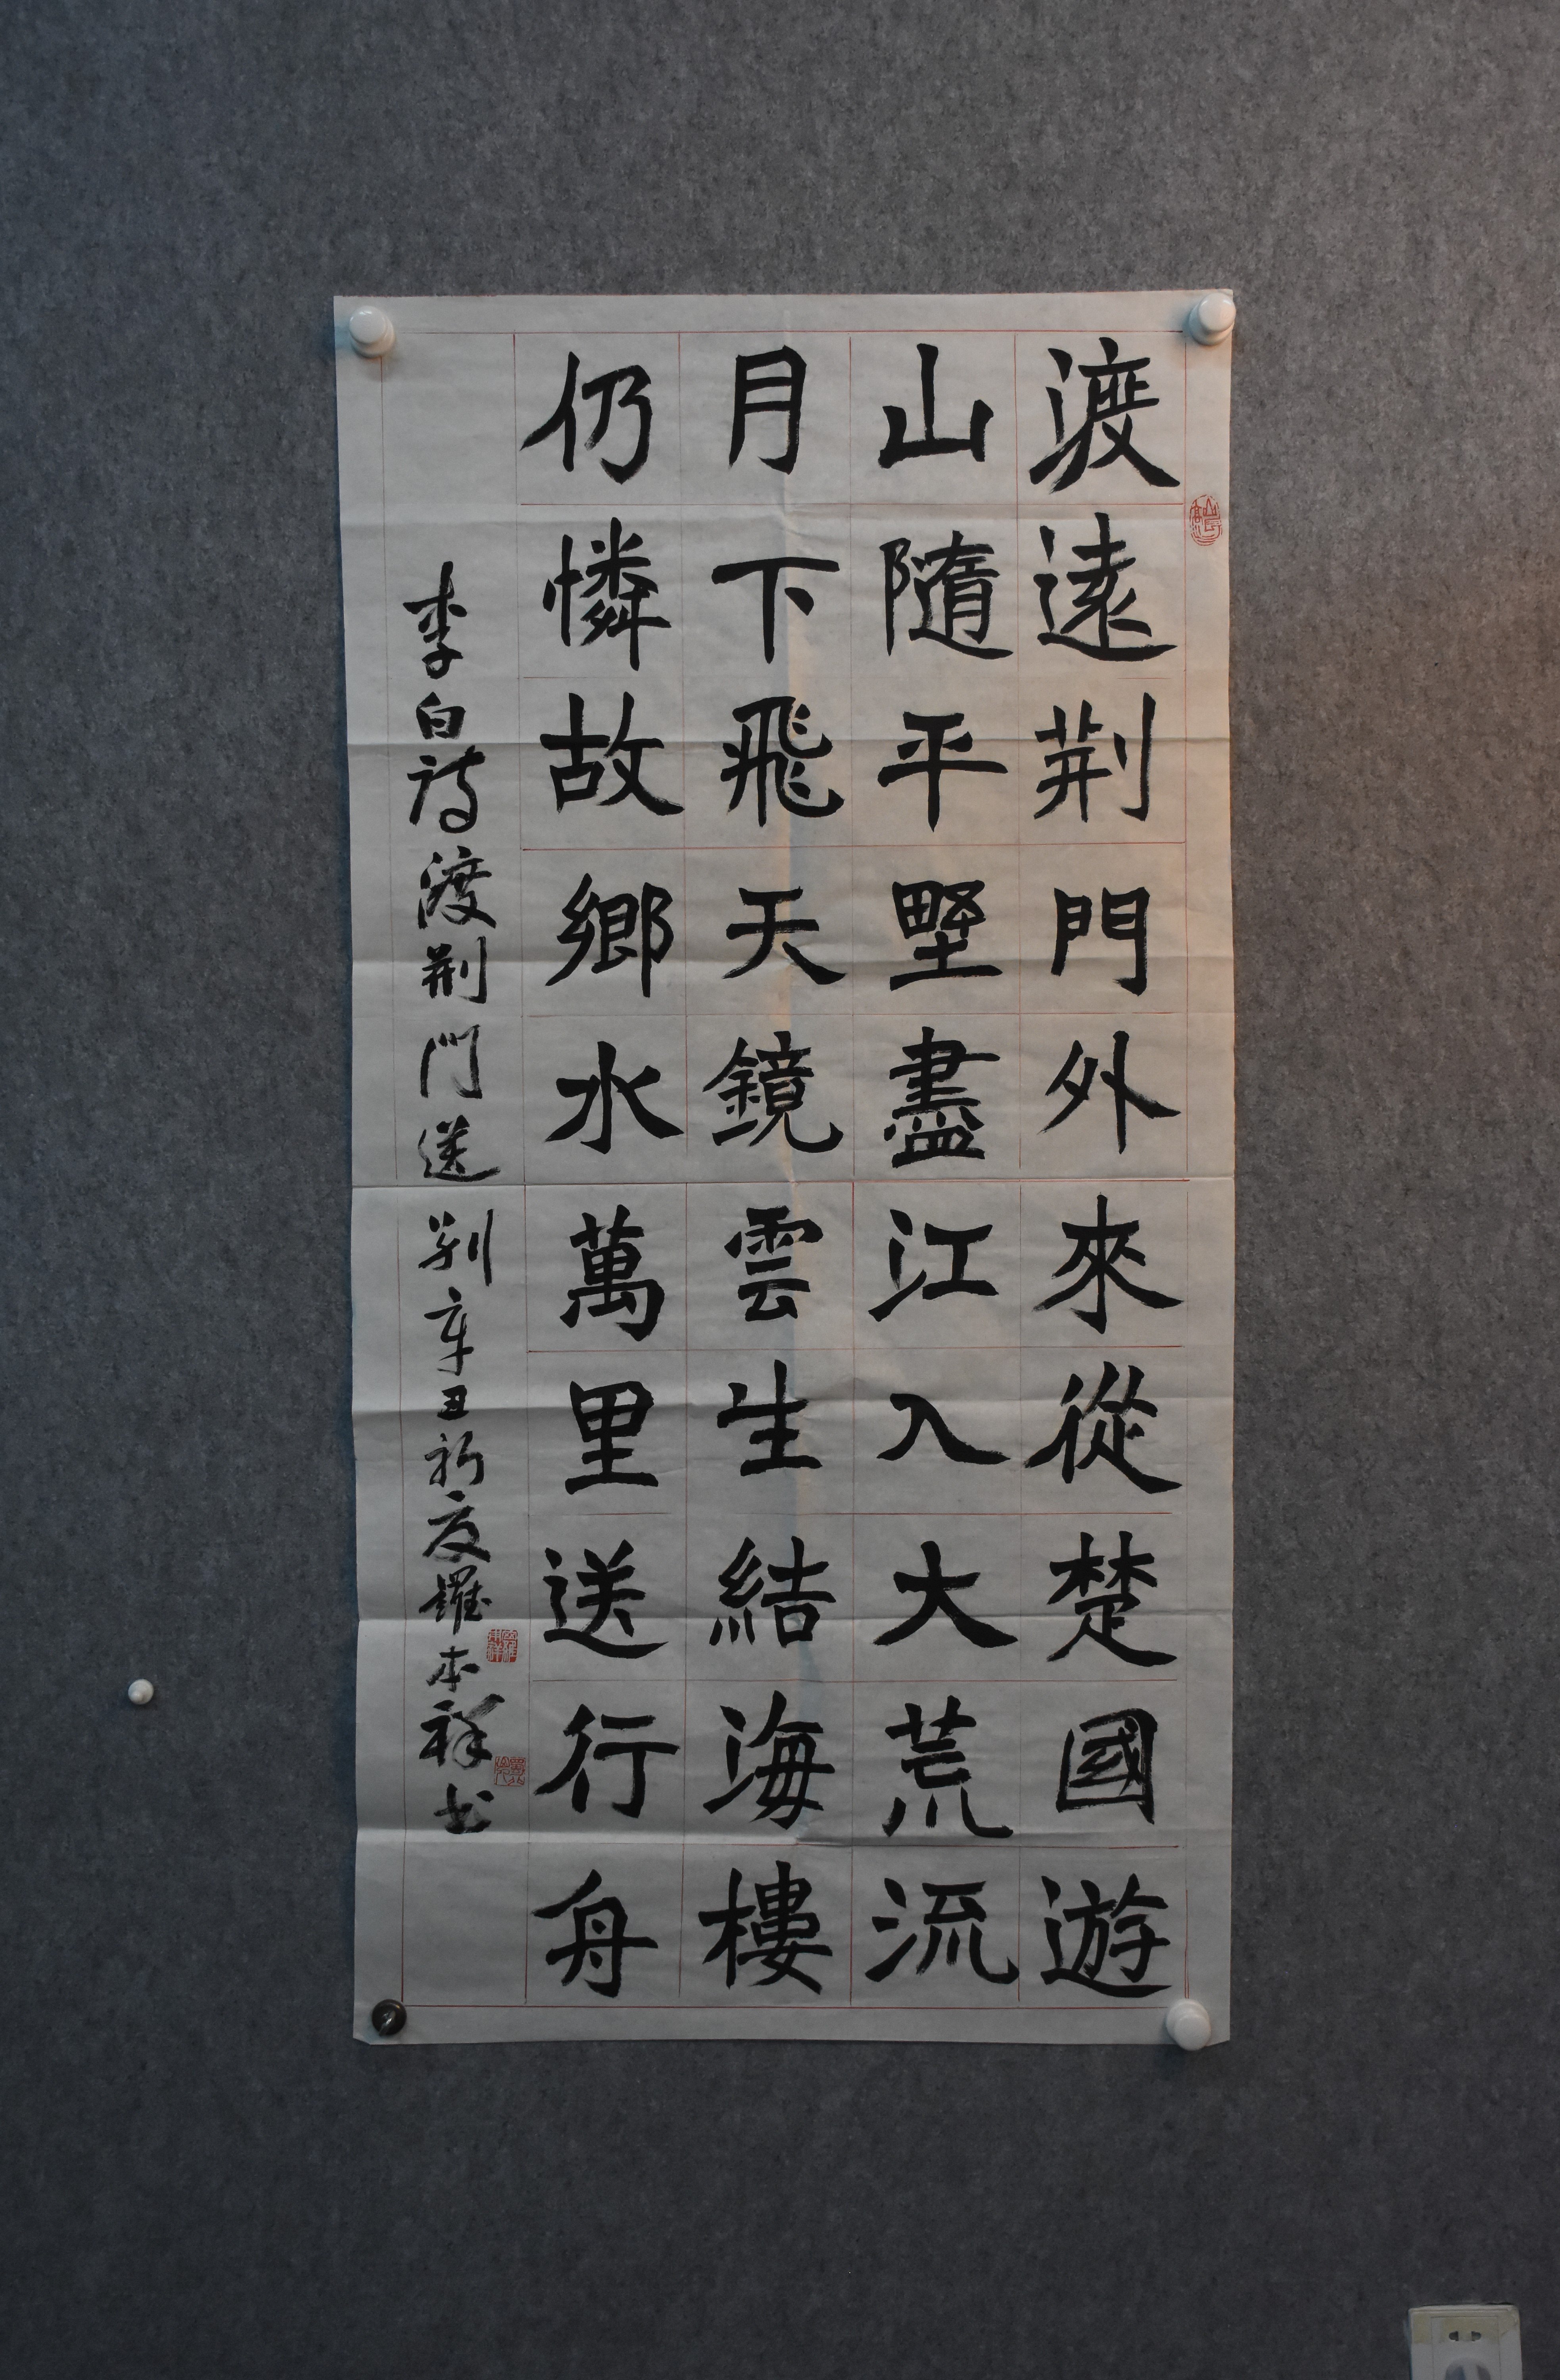 渡遠荆門外來從楚國遊
山隨平墅盡江入大荒流
月下飛天鏡雲生結海樓
仍憐故鄉水萬里送行舟
李白詩渡荆門送别辛丑初夏羅本祥书